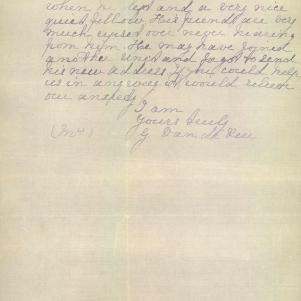 when he left and a very nice
quiet fellow. His friends are very
much upset over never hearing
from him. He may have joined
another Unit and forgot to send
his new address. If you could help
us in any way it would relieve
our anxiety.
I am
Yours truly
G. Dan